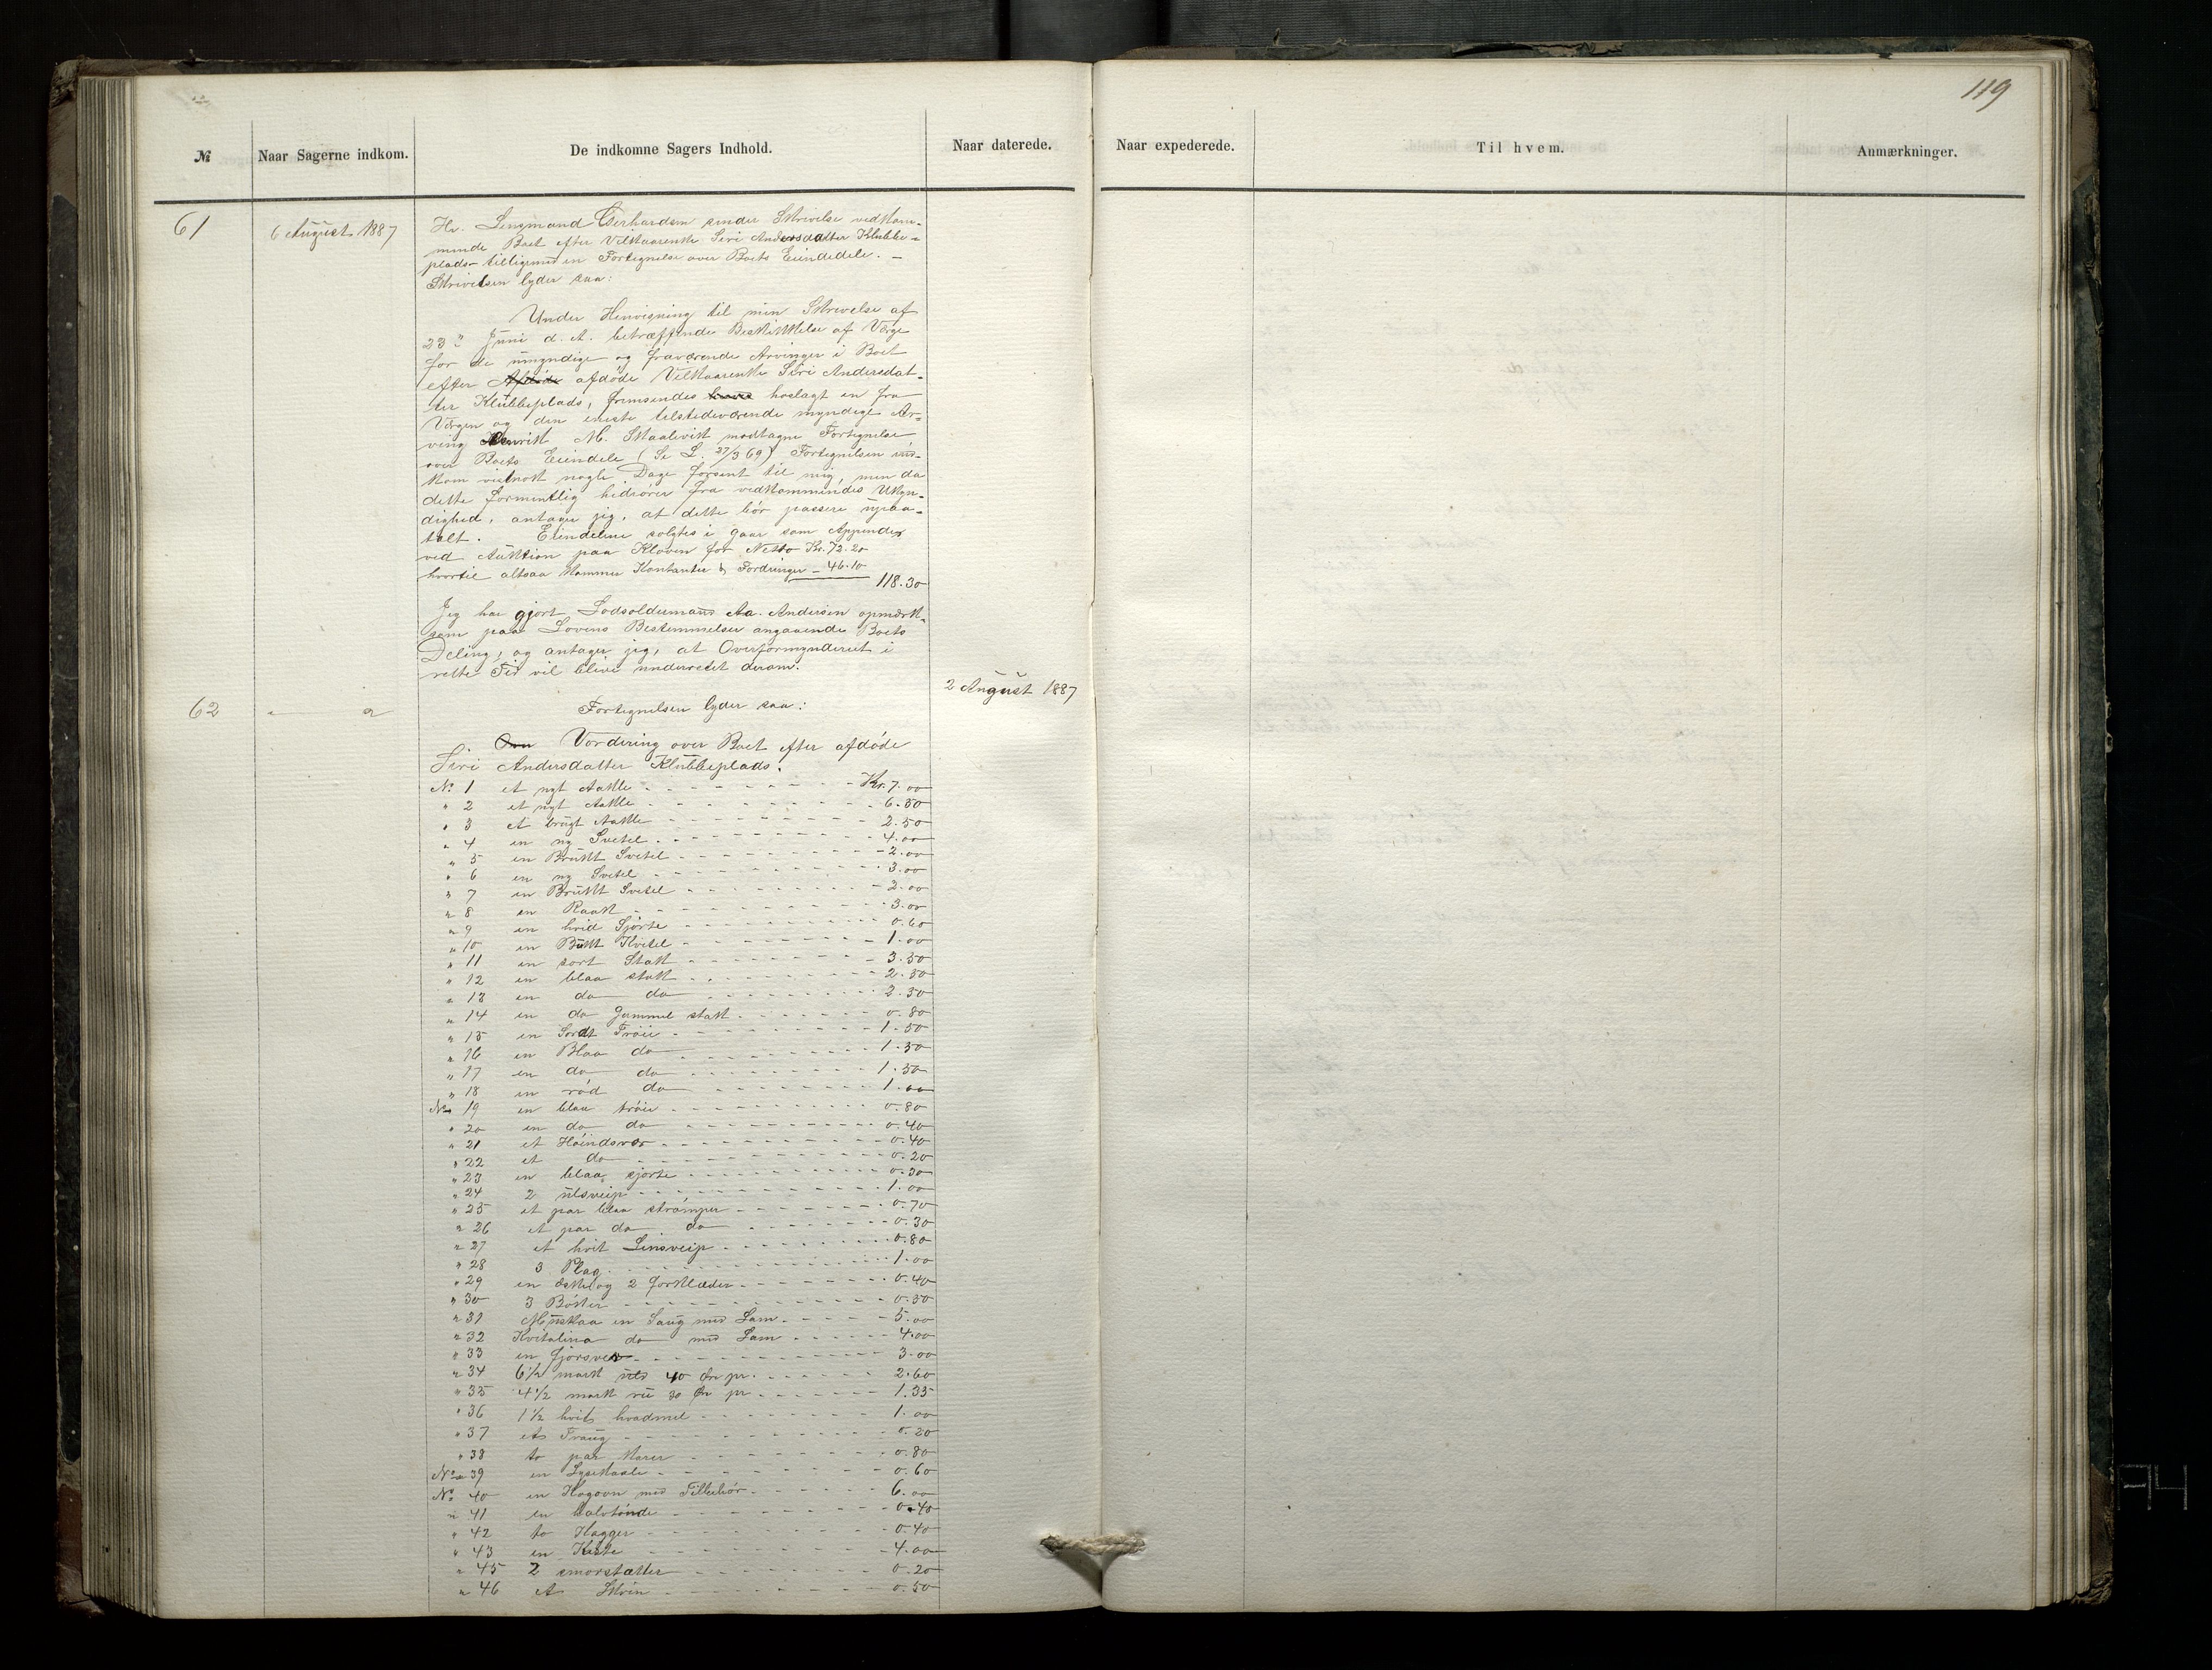 119
№ Naar Sagerne indkom. De indkomne Sagers Indhold. Naar daterede. Naar expederede. Til hvem. Anmærkninger.
61 6 August 1887
Hr. Lensmand Gerhardsen sender Skrivelse vedkom-
mende Boet efter Vilkaarenke Siri Andersdatter Klubbe-
plads tilligemed en Fortegnelse over Boets Eiendele. –
Skrivelsen lyder saa:
Under Henvisning til min Skrivelse af
23 Juni d. A. betræffende Beskikkelse af Værge
for de umyndige og fraværende Arvinger i Boet
efter Afdøde afdøde Vilkaarenke Siri Andersdat-
ter Klubbeplads, fremsendes hoslagt en fra
Værgen og den eneste tilstedeværende myndige Ar-
ving Henrik M. Skaalevik modtagne Fortegnelse
over Boets Eiendele (Se L. 27/3 69) Fortegnelsen ind-
kom vistnok nogle Dage forsent til mig, men da
dette formentlig hidrører fra vedkommendes Ukyn-
dighed, antager jeg, at dette bør passere upaa-
talt. Eiendelene solgtes i gaar som Appendix
ved Auktion paa Kloven for Netto Kr. 72.20
hvortil altsaa kommer Kontanter & Fordringer – 46.10
118.30
Jeg har gjort Lodsoldermand Aa. Andersen opmærk-
som paa Lovens Bestemmelser angaaende Boets
Deling, og antager jeg, at Overformynderiet i
rette Tid vil blive underrettet derom.
2 August 1887
62 " "
Fortegnelsen lyder saa:
Om Vordering over Boet efter afdøde
Siri Andersdatter Klubbeplads.
No 1 et nyt Aakle - Kr. 7.00
" 2 et nyt Aakle - 6.50
" 3 et brugt Aakle - 2.50
" 4 en ny Svetel - 4.00
" 5 en Brukt Svetel - 2.00
" 6 en ny Svetel - 3.00
" 7 en Brukt Svetel - 2.00
" 8 en Kaak - 3.00
" 9 en hvid Sjorte - 0.60
" 10 en Bukt Kvitel - 1.00
" 11 en sort Stak - 3.50
" 12 en blaa stak - 2.50
" 13 en do do - 2.50
" 14 en do Gammel stak - 0.80
" 15 en Sordt Trøie - 1.50
" 16 en Blaa do - 1.50
" 17 en do do - 1.50
" 18 en rød do - 1.00
No 19 en blaa trøie - 0.80
" 20 en do do - 0.40
" 21 et Høindsver - 0.40
" 22 et do - 0.20
" 23 en blaa sjorte - 0.30
" 24 2 ulsveip - 1.00
" 25 et par blaa strømper - 0.70
" 26 et par do do - 0.30
" 27 et hvit Linsveip - 0.80
" 28 3 Plag - 1.00
" 29 en æske og 2 forklæder - 0.40
" 30 3 Bøker - 0.50
" 31 Muskaa en Saug med Lam - 5.00
" 32 Kvitalina do med Lam - 4.00
" 33 en fjorsver - 3.00
" 34 6 1/2 mark uld 40 Øre pr. - 2.60
" 35 4 1/2 mark ru 30 Ør pr - 1.35
" 36 1 1/2 hvit hvadmel - 1.00
" 37 et Traug - 0.20
" 38 to par Karer - 0.80
No 39 en Lysekaale - 0.60
No 40 en Kogovn med Tilbehør - 6.00
" 41 en halvtønde - 0.40
" 42 to Kagger - 0.40
" 43 en Kiste - 4.00
" 45 2 smørstætter - 0.20
" 46 et Skrin - 0.50